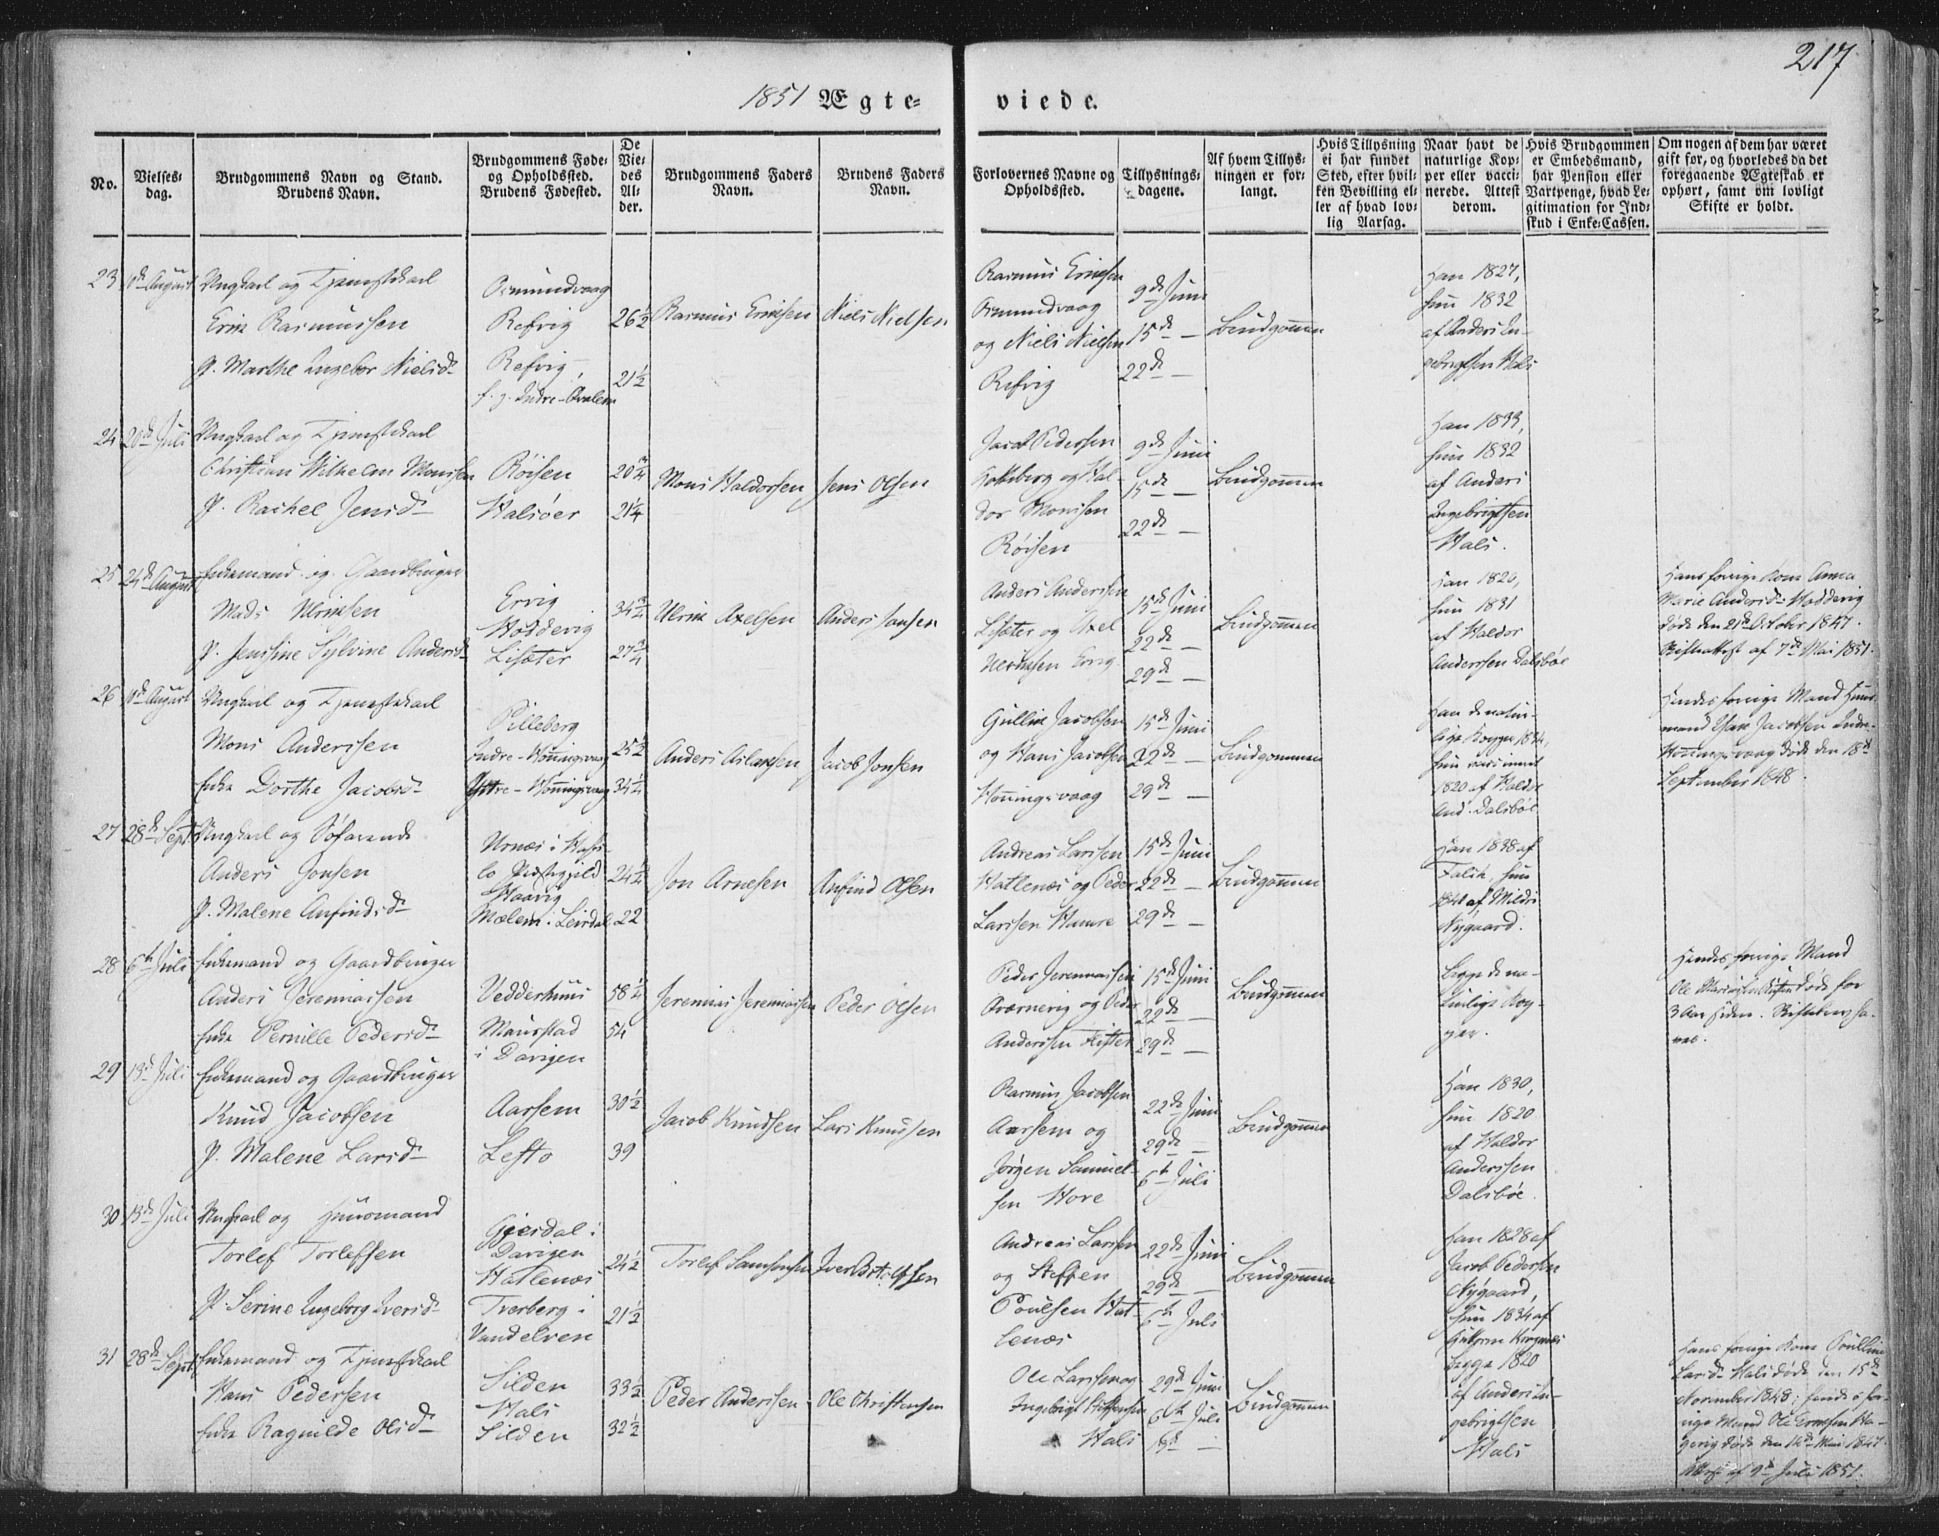 217
1851 Ægte-
viede.
No.
Vielses-
dag.
Brudgommens Navn og Stand.
Brudens Navn.
Brudgommens Føde-
og Opholdssted.
Brudens Fødested.
De
Vie-
des
Al-
der.
Brudgommens Faders
Navn.
Brudens Faders
Navn.
Forlovernes Navne og
Opholdssted.
Tillysnings-
dagene.
Af hvem Tillys-
ningen er for-
langt.
Hvis Tillysning
ei har fundet
Sted, efter hvil-
ken Bevilling el-
ler af hvad lov-
lig Aarsag.
Naar havt de
naturlige Kop-
per eller vacci-
nerede. Attest
derom.
Hvis Brudgommen
er Embedsmand,
har Pension eller
Vartpenge, hvad Le-
gitimation for Ind-
skud i Enke-Cassen.
Om nogen af dem har været
gift før, og hvorledes da det
foregaaende Ægteskab er
ophørt, samt om lovligt
Skifte er holdt.
23
August
Ungkarl og Tjenestekarl
Erik Rasmussen
P. Marthe Ingebor Nielsd.
Osmundvaag
Refvig
Refvig,
26½
21½
Rasmus Eriksen
Niels Nielsen
Rasmus Eriksen
Osmundvaag
og Niels Nielsen
Refvig
9de Juni
15de —
22de —
Brudgommen
Han 1827,
hun 1832
af Anders In-
gebrigtsen Hals
24
20de Juli
Ungkarl og Tjenestekarl
Christian Wilhelm Monssen
P. Rachel Jensd.
Røisen
Halsøer
20¾
21¼
Mons Haldorsen
Jens Olsen
Jacob Pedersen
og Hal-
dor Monsen
Røisen
9de Juni
15de —
22de —
Brudgommen
Han 1833,
hun 1832
af Anders
Ingebrigtsen
Hals.
25
24de August
Enkemand og Gaardbruger
Mads Ulriksen
P. Jenssine Sylvine Andersd.
Ervig
Hoddevig
Lisæter
34¾
27¾
Ulrik Axelsen
Anders Jansen
Anders Andersen
Lisæter og Axel
Ulriksen Ervig
15de Juni
22de —
29de —
Brudgommen
Han 1820,
hun 1831
af Haldor
Anderssen Dalsbøe
Hans forrige Kone Anna
Marie Andersd. Hoddevig
døde den 21de October 1847.
Skifteattest af 7de Mai 1851.
26
August
Ungkarl og Tjenestekarl
Mons Anderssen
Enke Dorthe Jacobsd.
Pilleberg
Indre-Honningsvaag
Yttre-Honningsvaag
25½
34¼
Anders Aslaksen
Jacob Jonsen
Gullik Jacobsen
og Hans Jacobsen
Honningsvaag
15de Juni
22de —
29de —
Brudgommen
Han de natur-
lige Kopper
hun vaccineret
1820 af Haldor
And. Dalsbøe
Hendes forrige Mand Huus-
mand Jacobsen Indre-
Honningsvaag døde den 18de
September 1848.
27
28de Sept.
Ungkarl og Søfarende
Anders Jonsen
P. Malene Anfindsd.
Urnæs i Hafs-
lo Præstegjeld
Haavig
Mælem i Leirdal
24½
22
Jon Arnesen
Anfind Olsen
Andreas Larssen
Hatlenæs og Peder
Larssen Hamre
15de Juni
22de —
29de —
Brudgommen
Han 1838 af
Falch, hun
af Mildri
Nygaard.
28
6te Juli
Enkemand og Gaardbruger
Anders Jeremiassen
Enke Pernille Pedersd.
Vedderhuus
Maurstad
i Davigen
58¼
54
Jeremias Jeremiassen
Peder Olsen
Peder Jeremiassen
og Peder
Anderssen
15de Juni
22de —
29de —
Brudgommen
Begge de na-
turlige Kop-
per.
Hendes forrige Mand
Ole døde for
3 Aar siden.
29
13de Juli
Enkemand og Gaardbruger
Knud Jacobsen
P. Malene Larsd.
Aarsem
Lefto
30½
39
Jacob Knudsen
Lars Knudsen
Rasmus Jacobsen
Aarsem og
Jørgen Samuel-
sen Hove
22de Juni
29de —
6te Juli
Brudgommen
Han 1830,
hun 1820
af Haldor
Anderssen
Dalsbøe.
30
13de Juli
Ungkarl og Huusmand
Torlef Torlefsen
P. Serine Ingeborg Iversd.
Gjerdal i
Davigen
Hatlenæs
Tverberg i
Vandelven
24½
21½
Torlef Samsonsen
Iver
Andreas Larssen
og Steffen
Poulsen Hat-
lenæs
22de Juni
29de —
6te Juli
Brudgommen
Han 1828 af
Jacob Pedersen
Nygaard,
hun 1834 af
31
28de Sept.
Enkemand og Tjenestekarl
Hans Pedersen
Enke Ragnilde Olsd.
Silden
Hals
Silden
33½
32½
Peder Anderssen
Ole Christensen
Ole Larssen og
Ingebrigt Steffensen
Hals
29de Juni
6te Juli
13de —
Brudgommen
begge 1820
af Anders In-
gebrigtsen
Hals
Hans forrige Kone Poulline
Larsd. Hals døde den 15de
November 1848; hendes for-
rige Mand Ole
døde den 14de Mai 1847.
af 9de Juli 1851.